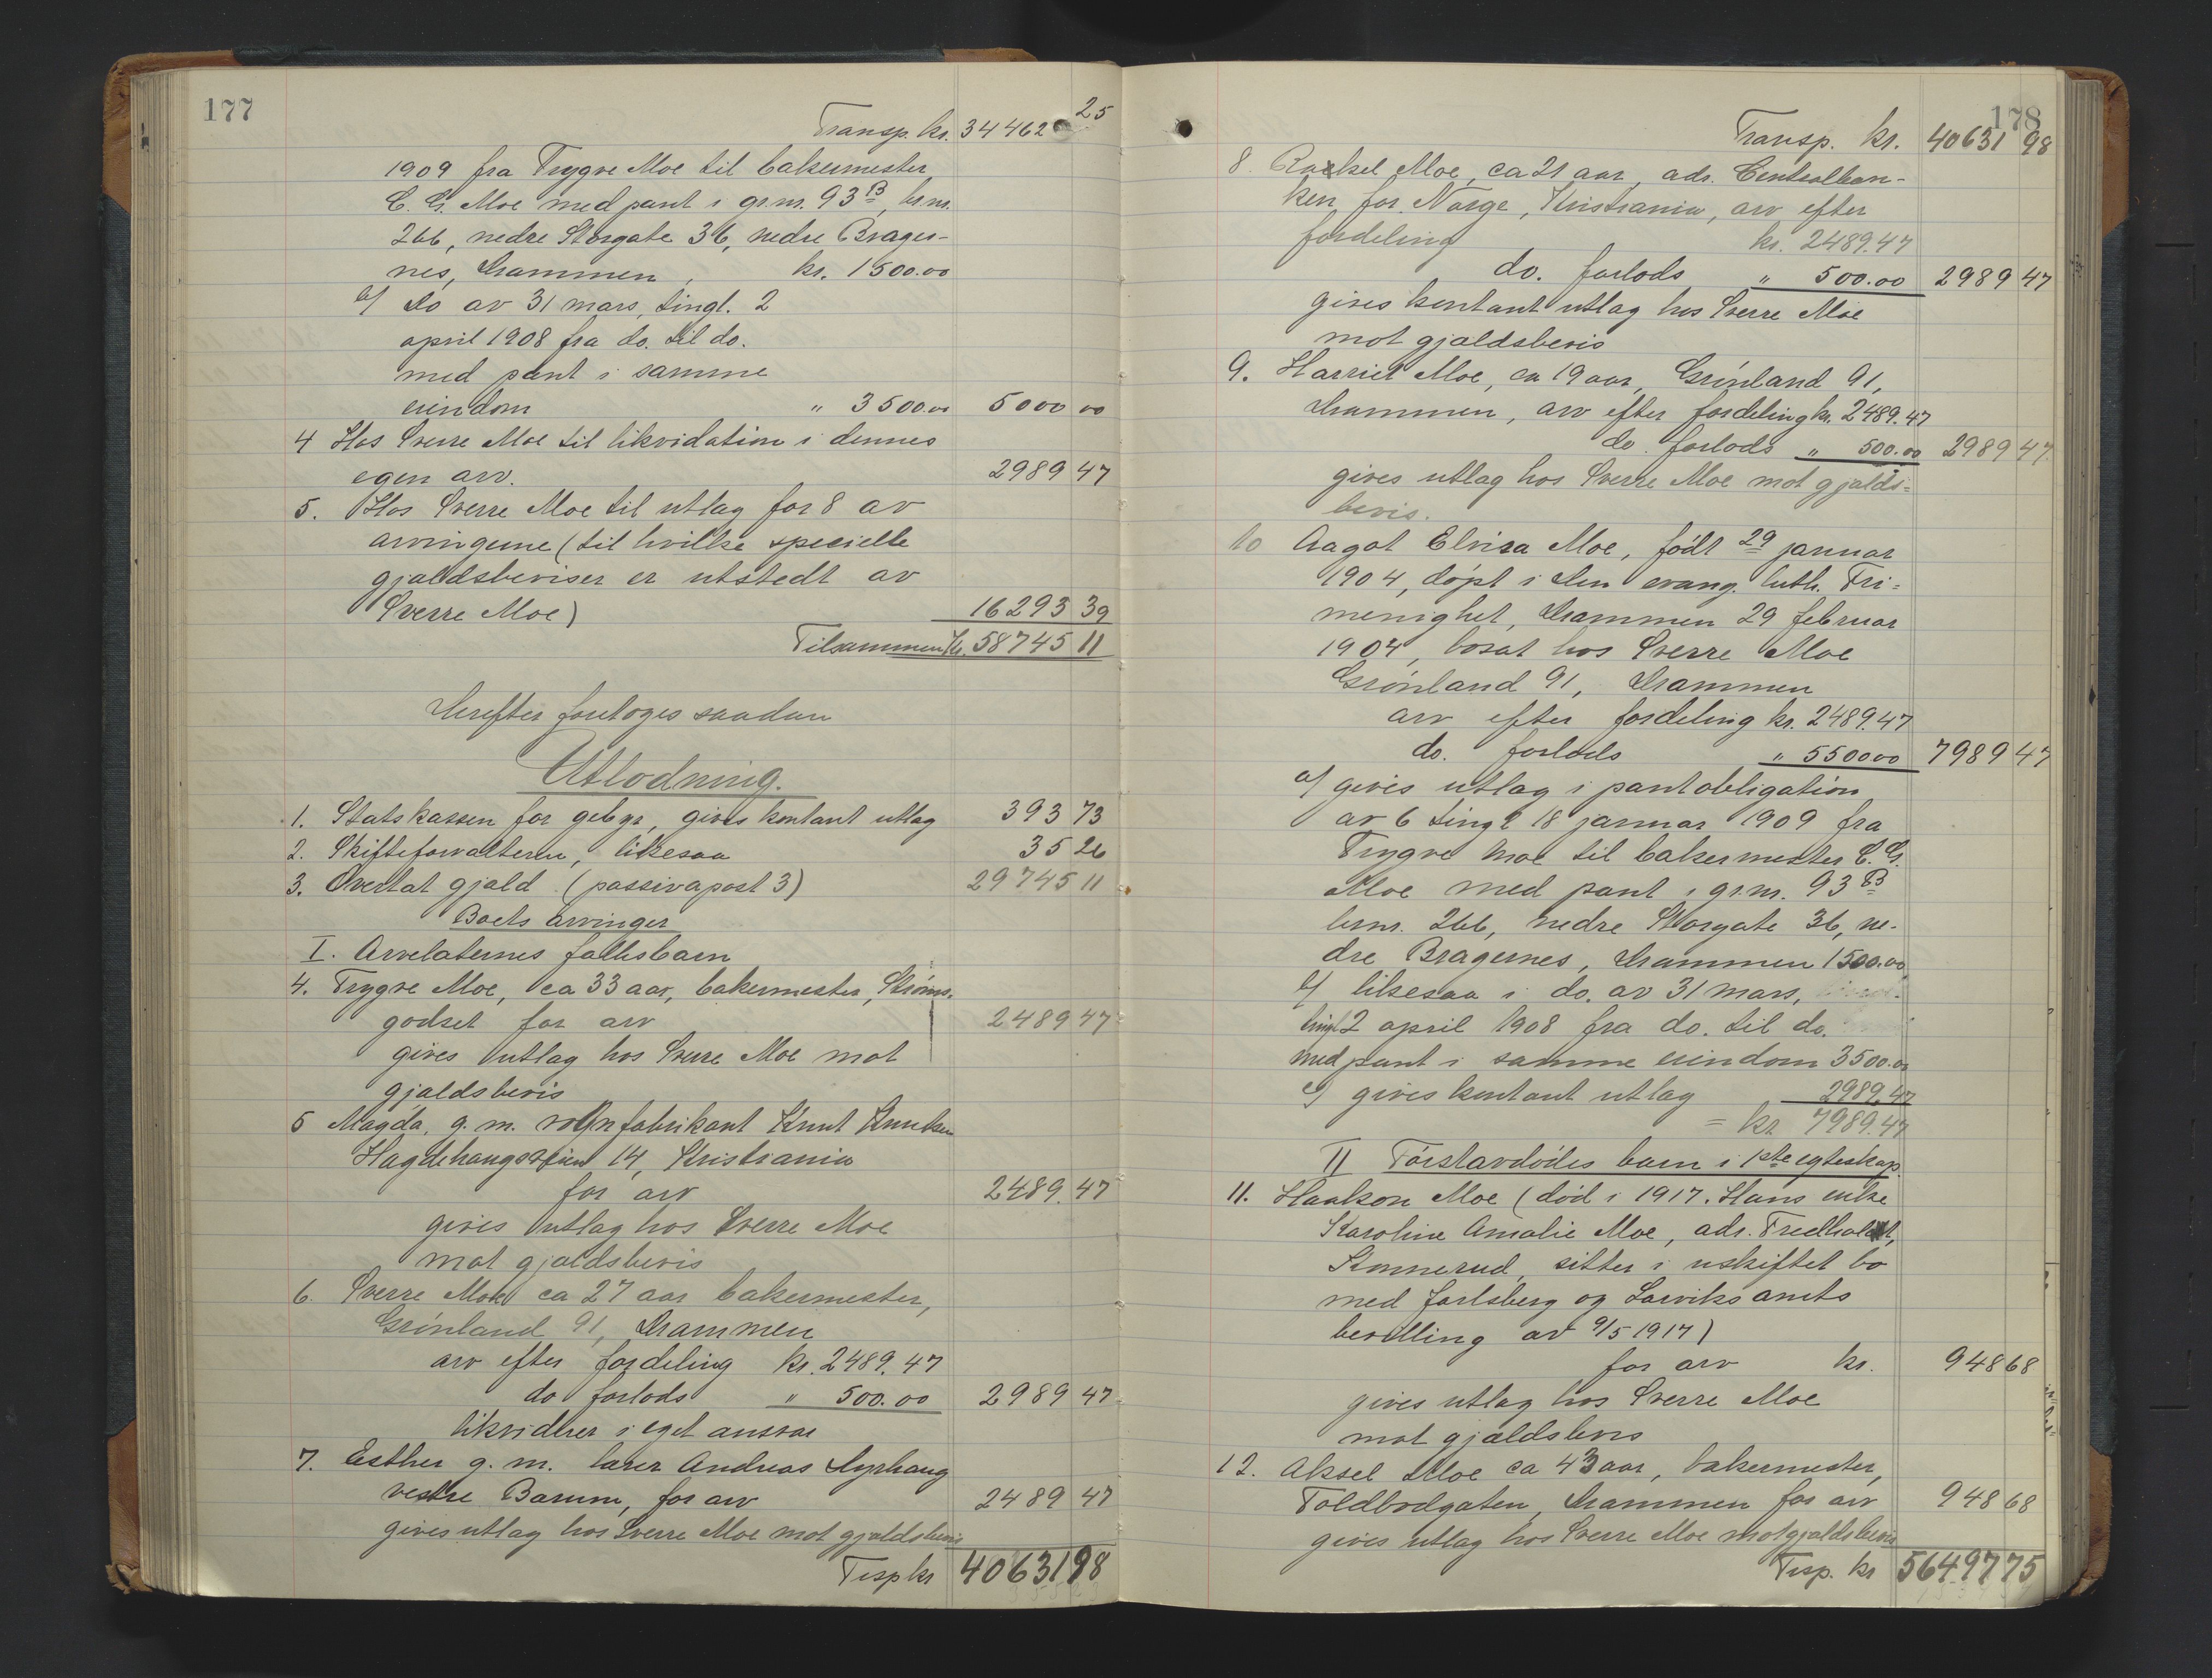 177
Transp. kr. 34462 25
1909 fra Trygve Moe til bakermester
C. G. Moe med pant i gr.nr. 93 B, br.nr.
266, nedre Storgate 36, nedre Brager-
nes, Drammen, kr. 1500.00
b/ Do av 31 mars, tingl. 2
april 1908 fra do. til do.
med pant i samme
eiendom " 3500.00 5000 00
4 Hos Sverre Moe til likvidation i dennes
egen arv. 2989 47
5. Hos Sverre Moe til utlag for 8 av
arvingerne (til hvilke specielle
gjældsbeviser er utstedt av
Sverre Moe) 16293 39
Tilsammen kr. 58745 11
Derefter foretoges saadan
Utlodning.
1. Statskassen for gebyr, gives kontant utlag 393 73
2. Skifteforvalteren, likesaa 35 26
3. Overtat gjæld (passivapost 3) 29745 11
Boets arvinger
I. Arvelaternes fællesbarn
4. Trygve Moe, ca 33 aar, bakermester, Strøms-
godset for arv 2489 47
gives utlag hos Sverre Moe mot
gjældsbevis
5 Magda, g. m. vognfabrikant Knut Knutsen
Hagdehaugsveien 14, Kristiania
for arv 2489. 47
gives utlag hos Sverre Moe
mot gjældsbevis
6. Sverre Moe ca 27 aar bakermester,
Grønland 91, Drammen
arv efter fordeling kr. 2489. 47
do forlods " 500. 00 2989 47
likviderer i eget ansvar
7. Esther g. m. lærer Andreas Dyrhaug
vestre Bærum, for arv 2489 47
gives utlag hos Sverre Moe mot gjældsbevis
Trsp kr 40631 98
178
Transp. kr. 40631 98
8. Rakel Moe, ca 21 aar, adr. Centralban-
ken for Norge, Kristiania, arv efter
fordeling kr. 2489.47
do. forlods " 500.00 2989 47
gives kontant utlag hos Sverre Moe
mot gjældsbevis
9. Harriet Moe, ca 19 aar, Grønland 91,
Drammen, arv efter fordeling kr. 2489.47
do. forlods " 500.00 2989 47
gives utlag hos Sverre Moe mot gjælds-
bevis.
10 Aagot Elvira Moe, født 29 januar
1904, døpt i den evang. luth. Fri-
menighet, Drammen 29 februar
1904, bosat hos Sverre Moe
Grønland 91, Drammen
arv efter fordeling kr. 2489.47
do. forlods " 5500 00 7989 47
a/ gives utlag i pantobligation
av 6 tingl 18 januar 1909 fra
Trygve Moe til bakermester C. G.
Moe med pant i gr.nr. 93 B
br.nr. 266, nedre Storgate 36, ne-
dre Bragernes, Drammen 1500.00
b/ likesaa i do. av 31 mars,
tingl 2 april 1908 fra do. til do.
med pant i samme eiendom 3500.00
c/ gives kontant utlag 2989.47
= kr 7989.47
II Førstavdødes barn i 1ste egteskap.
11. Haakon Moe (død i 1917. Hans enke
Karoline Amalie Moe, adr. Fredholdt,
Konnerud, sitter i uskiftet bo
med Jarlsberg og Larviks amts
bevilling av 9/5 1917)
for arv kr. 948 68
gives utlag hos Sverre Moe
mot gjældsbevis
12. Aksel Moe ca 43 aar, bakermester,
Toldbodgaten, Drammen for arv 948 68
gives utlag hos Sverre Moe mot gjældsbevis
Trsp. kr 56497 75